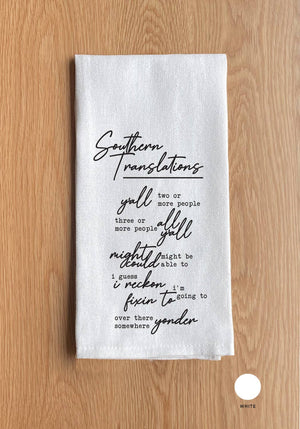 Southern
Translations
y'all two or
more people
three or
more people all
y'all
might
could might be
able to
i guess
i reckon
fixin to i'm
going to
over there
somewhere yonder
WHITE